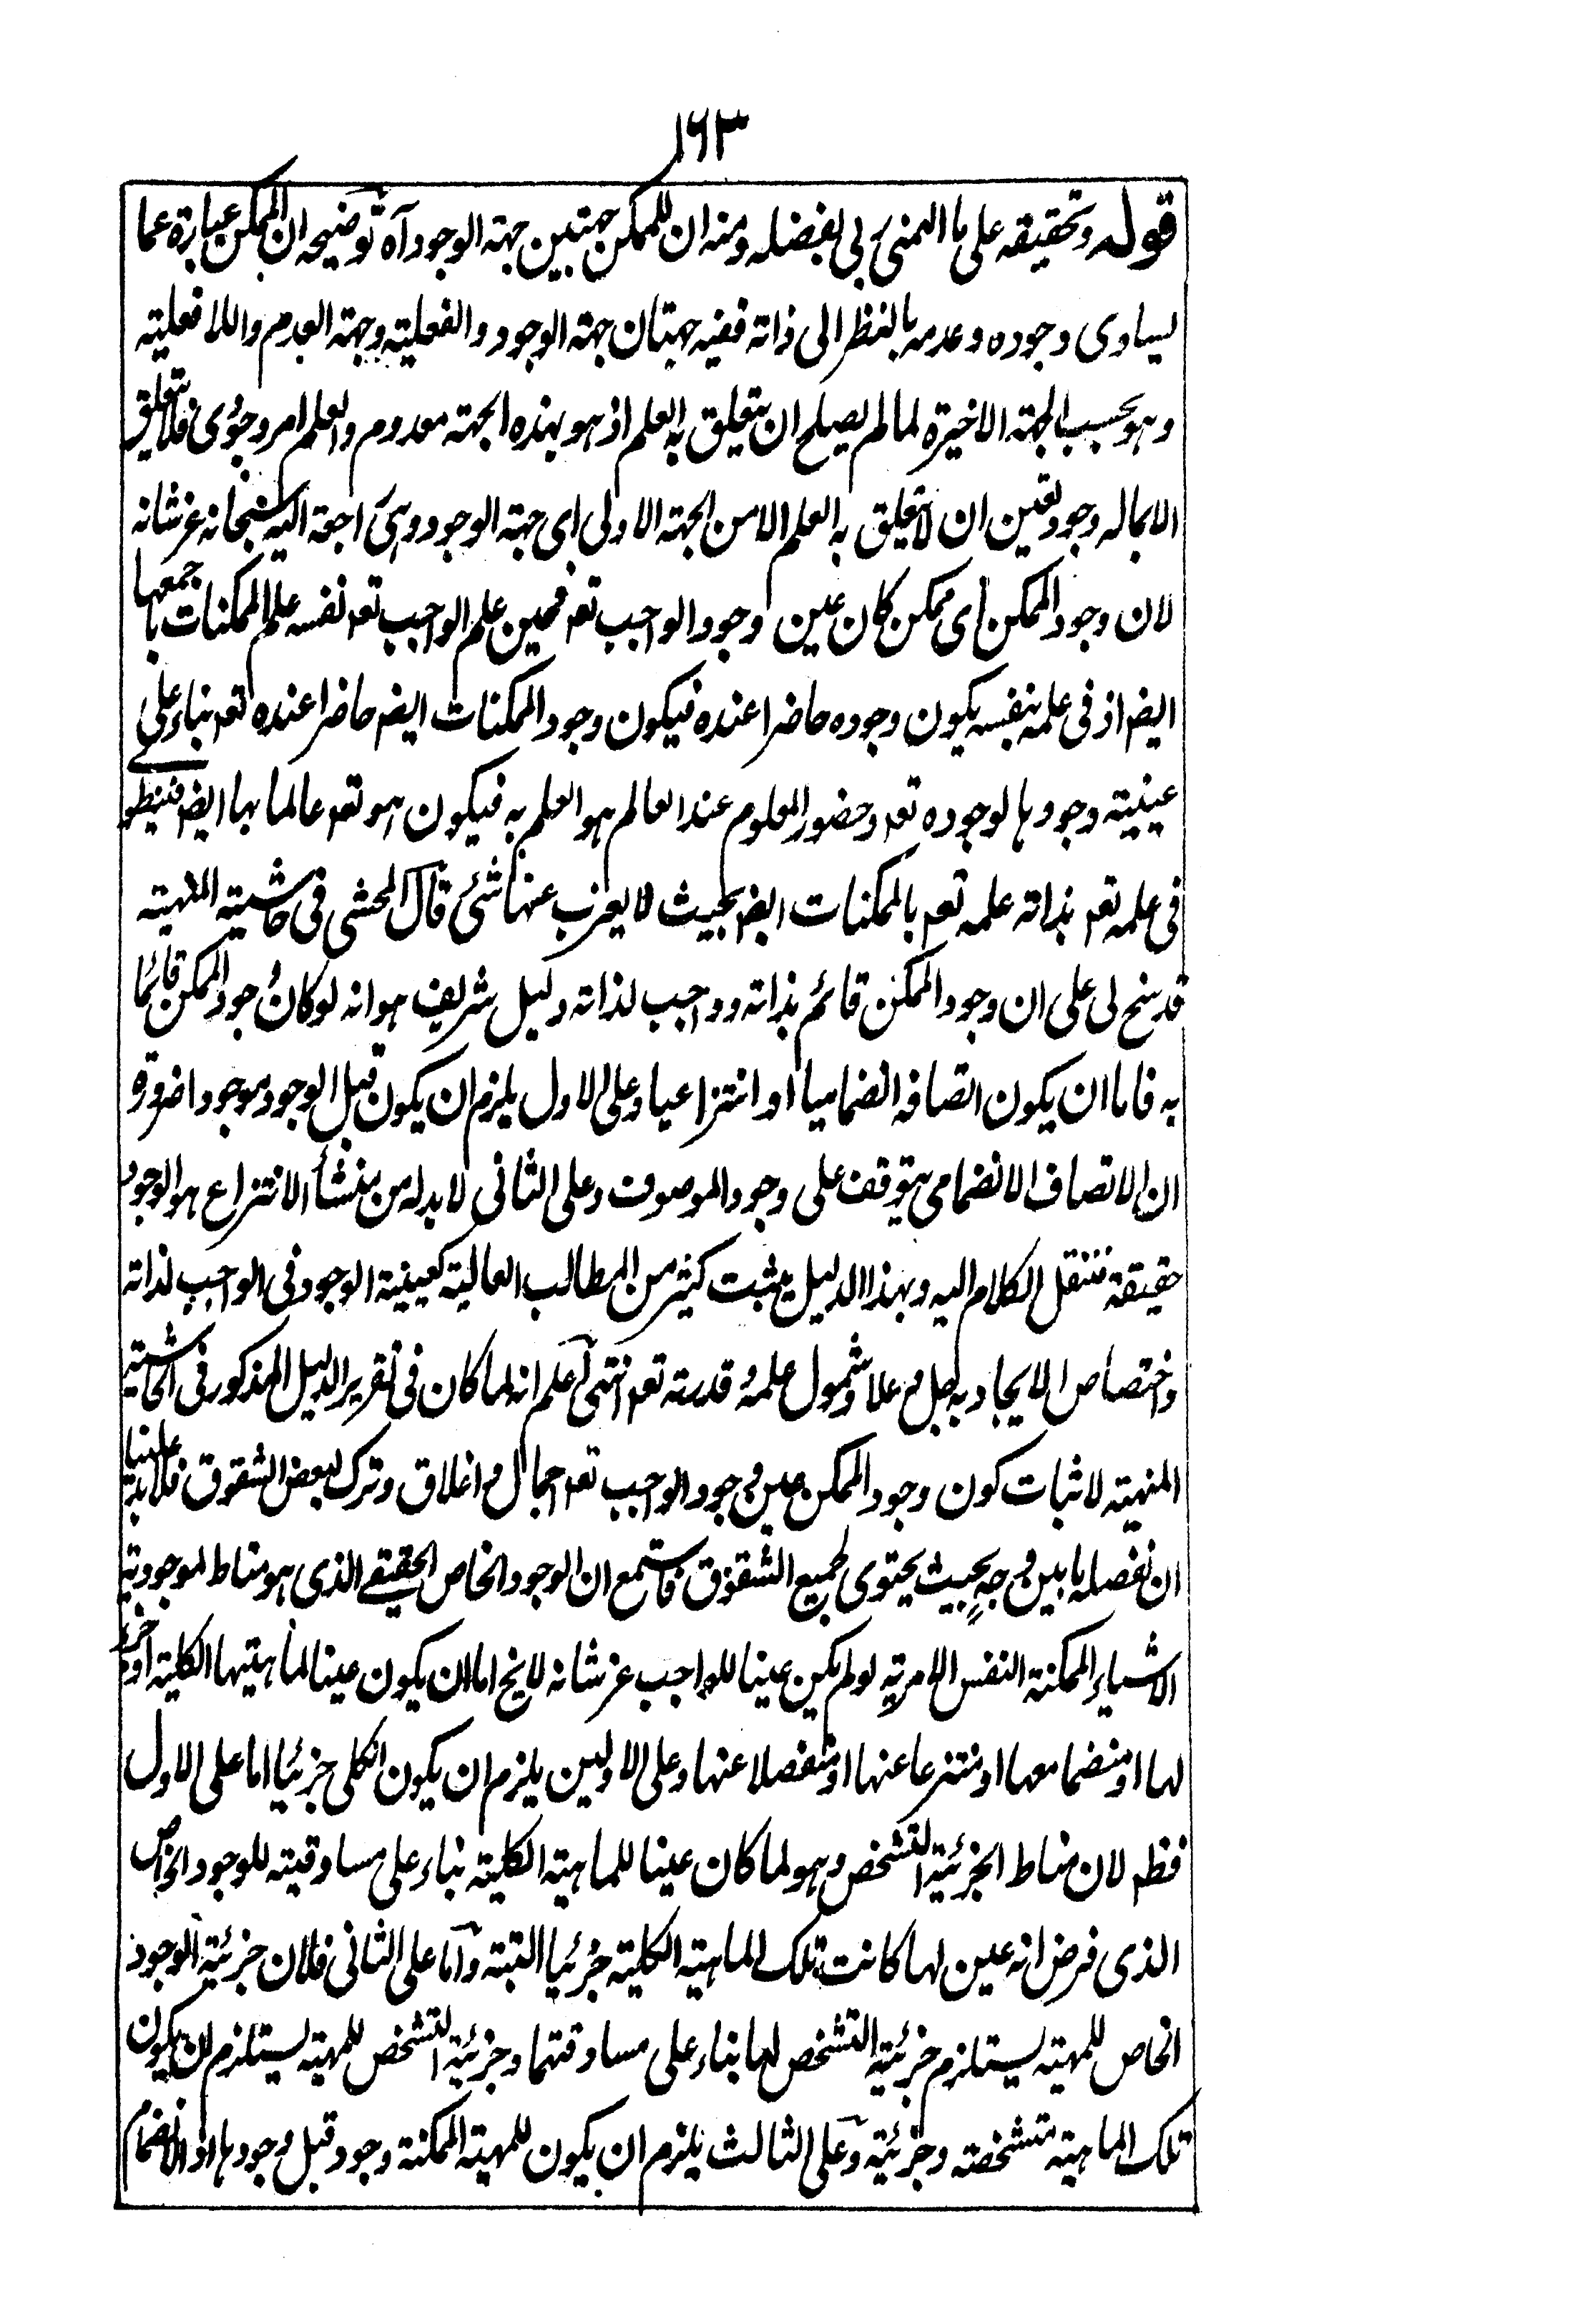 ١٦٣
قوله وتحقيقه على ما الهمنى ربى بفضله ومنه ان للممكن جهتين جهة الوجود آه توضيحه ان الممكن عبارة عما
يساوى وجوده وعدمه بالنظر الى ذاته ففيه جهتان جهة الوجود والفعلية وجهة العدم واللافعلية
وهو بحسب الجهة الاخيرة لما لم يصلح ان يتعلق به العلم اذ هو بهذه الجهة معدوم والعلم امر وجودى فلا يتعلق
الا بماله وجود تعين ان لا يتعلق به العلم الا من الجهة الاولى اى جهة الوجود وهى راجعة اليه سبحانه عز شانه
لان وجود الممكن اى ممكن كان عين وجود الواجب تعه فحين علم الواجب تعه نفسه علم الممكنات باجمعها
ايضا اذ فى علمه بنفسه يكون وجوده حاضرا عنده فيكون وجود الممكنات ايضا حاضرا عنده تعه بناء على
عينية وجودها لوجوده تعه وحضور المعلوم عند العالم هو العلم به فيكون هو تعه عالما بها ايضا فينطو
فى علمه تعه بذاته علمه تعه بالممكنات ايضا بحيث لا يعزب عنها شئ قال المحشى فى حاشيته المنهية
قد سنح لى على ان وجود الممكن قائم بذاته وواجب لذاته دليل شريف هو انه لو كان وجود الممكن قائما
به فاما ان يكون اتصافه انضماميا او انتزاعيا وعلى الاول يلزم ان يكون قبل الوجود موجودا ضرورة
ان الاتصاف الانضمامى يتوقف على وجود الموصوف وعلى الثانى لا بد له من منشأ الانتزاع هو الوجود
حقيقة فننقل الكلام اليه وبهذا الدليل يثبت كثير من المطالب العالية كعينية الوجود فى الواجب لذاته
واختصاص الايجاد به جل وعلا وشمول علمه وقدرته تعه انتهى اعلم انه لما كان فى تقرير الدليل المذكور فى الحاشية
المنهية لاثبات كون وجود الممكن عين وجود الواجب تعه اجمال واغلاق وترك لبعض الشقوق فلا بد علينا
ان نفصله بابين وجه بحيث يحتوى لجميع الشقوق فاستمع ان الوجود الخاص الحقيقى الذى هو مناط لموجودية
الاشياء الممكنة النفس الامرية لو لم يكن عينا للواجب عز شانه لا يخ اما ان يكون عينا لماهيتها الكلية او جزء
لها او منضما معها او منتزعا عنها او منفصلا عنها وعلى الاولين يلزم ان يكون الكلى جزئيا اما على الاول
فظه لان مناط الجزئية التشخص وهو لما كان عينا للماهية الكلية بناء على مساوقيته للوجود الخاص
الذى فرض انه عين لها كانت تلك الماهية الكلية جزئيا البتة واما على الثانى فلان جزئية الوجود
الخاص للمهية يستلزم جزئية التشخص لها بناء على مساوقتهما وجزئية التشخص للمهية يستلزم ان يكون
تلك الماهية متشخصة وجزئية وعلى الثالث يلزم ان يكون للمهية الممكنة وجود قبل وجودها اذ الانضمام